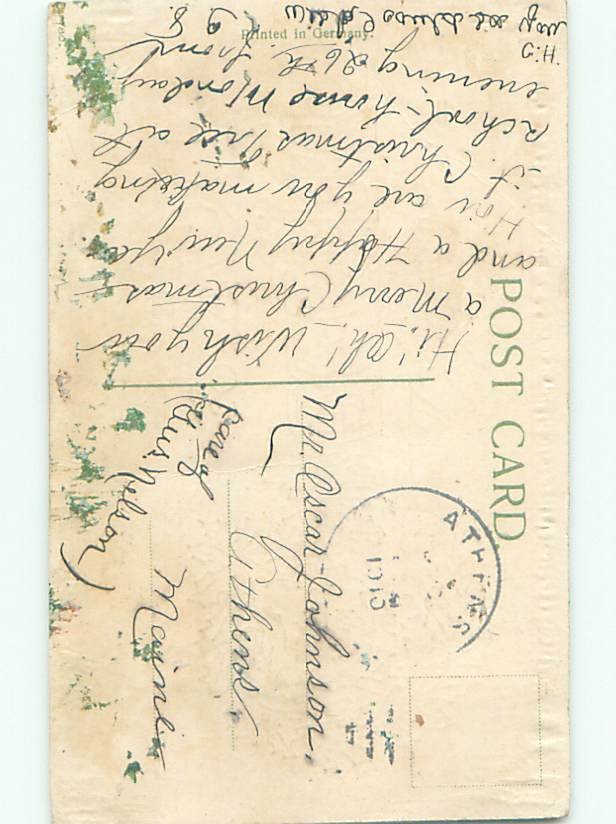 POST CARD
Hi! Ah! Wish you
a Merry Christmas
and a Happy New Year
How are you making
it. Christmas Tree at
school-house Monday
evening 26th, from
G.H.
Printed in Germany.
ATHENS
1910
Mr. Oscar Johnson.
Athens,
Maine
(care of
Gus Nelson)